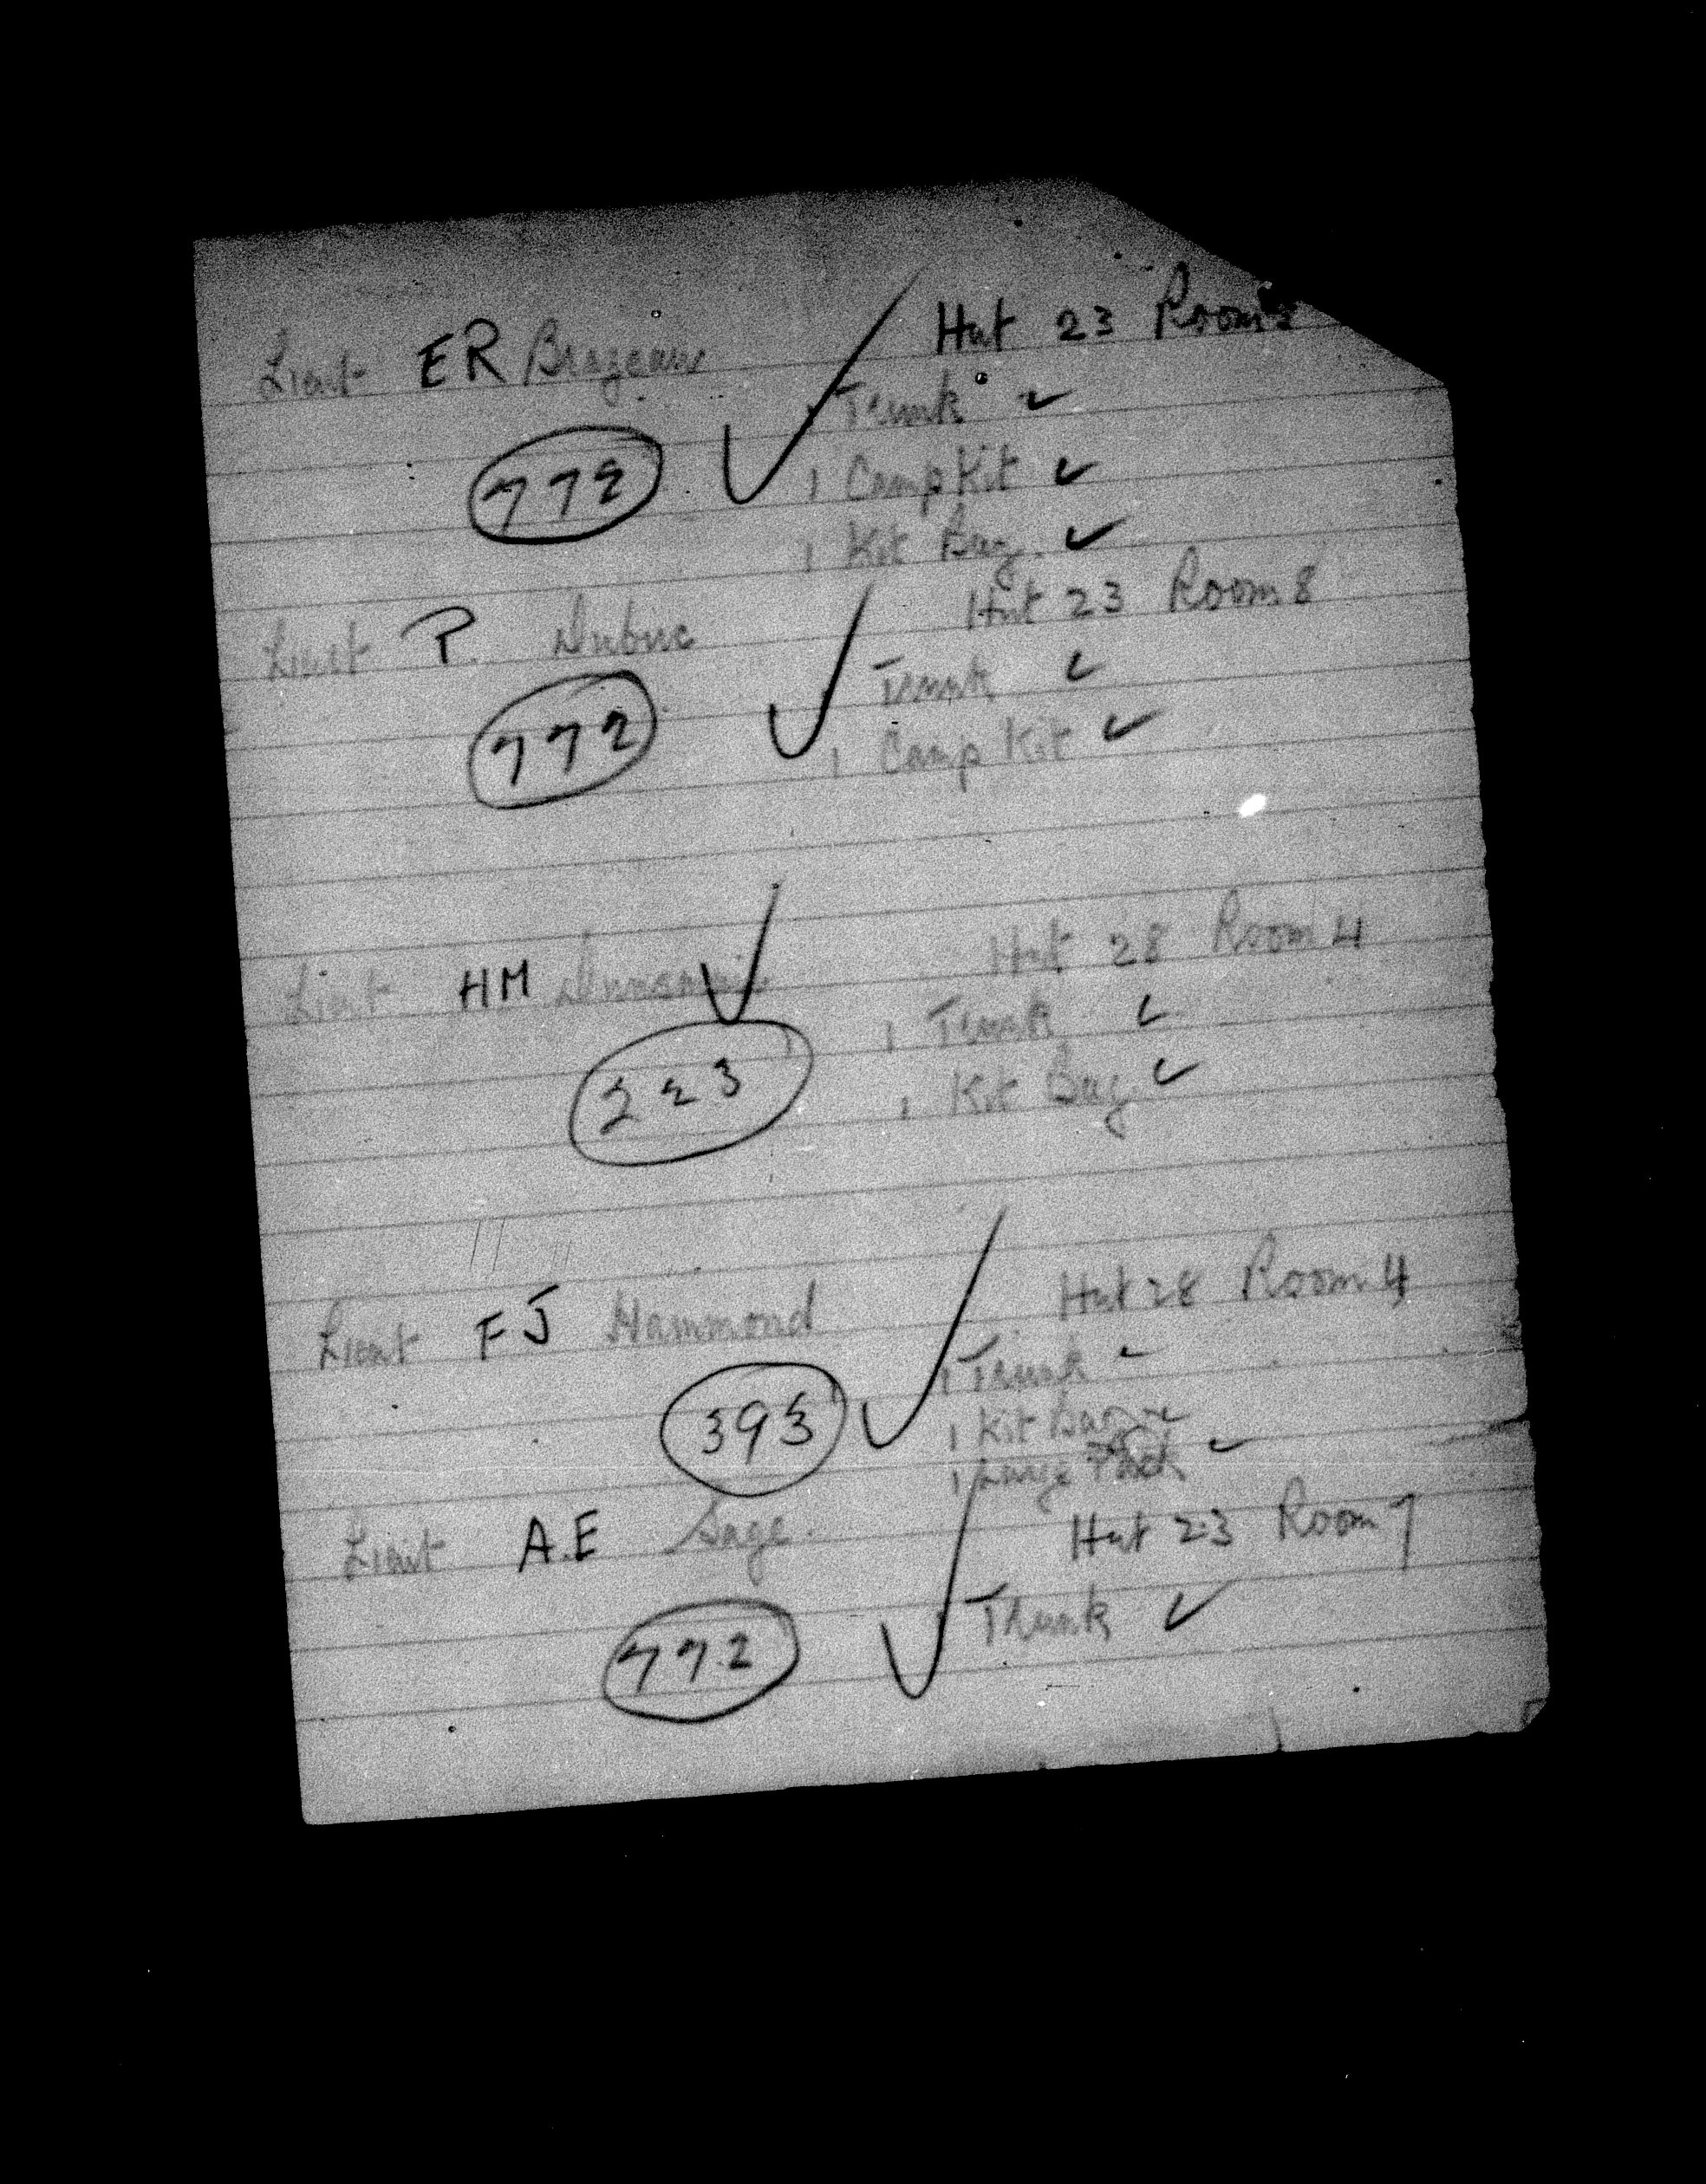 Lieut ER Brazeau Hut 23 Room 8
1 Trunk ✓
772 ✓ 1 Camp Kit ✓
1 Kit Bag. ✓
Lieut P. Dubuc Hut 23 Room 8
1 Trunk ✓
772 ✓ 1 Camp Kit ✓
Lieut HM Hut 28 Room 4
✓ 1 Trunk ✓
223 1 Kit Bag ✓
Lieut FJ Hammond Hut 28 Room 4
1 Trunk ✓
393 ✓ 1 Kit Bag ✓
1 Large Pack ✓
Lieut A.E Sage. Hut 23 Room 7
772 ✓ 1 Trunk ✓